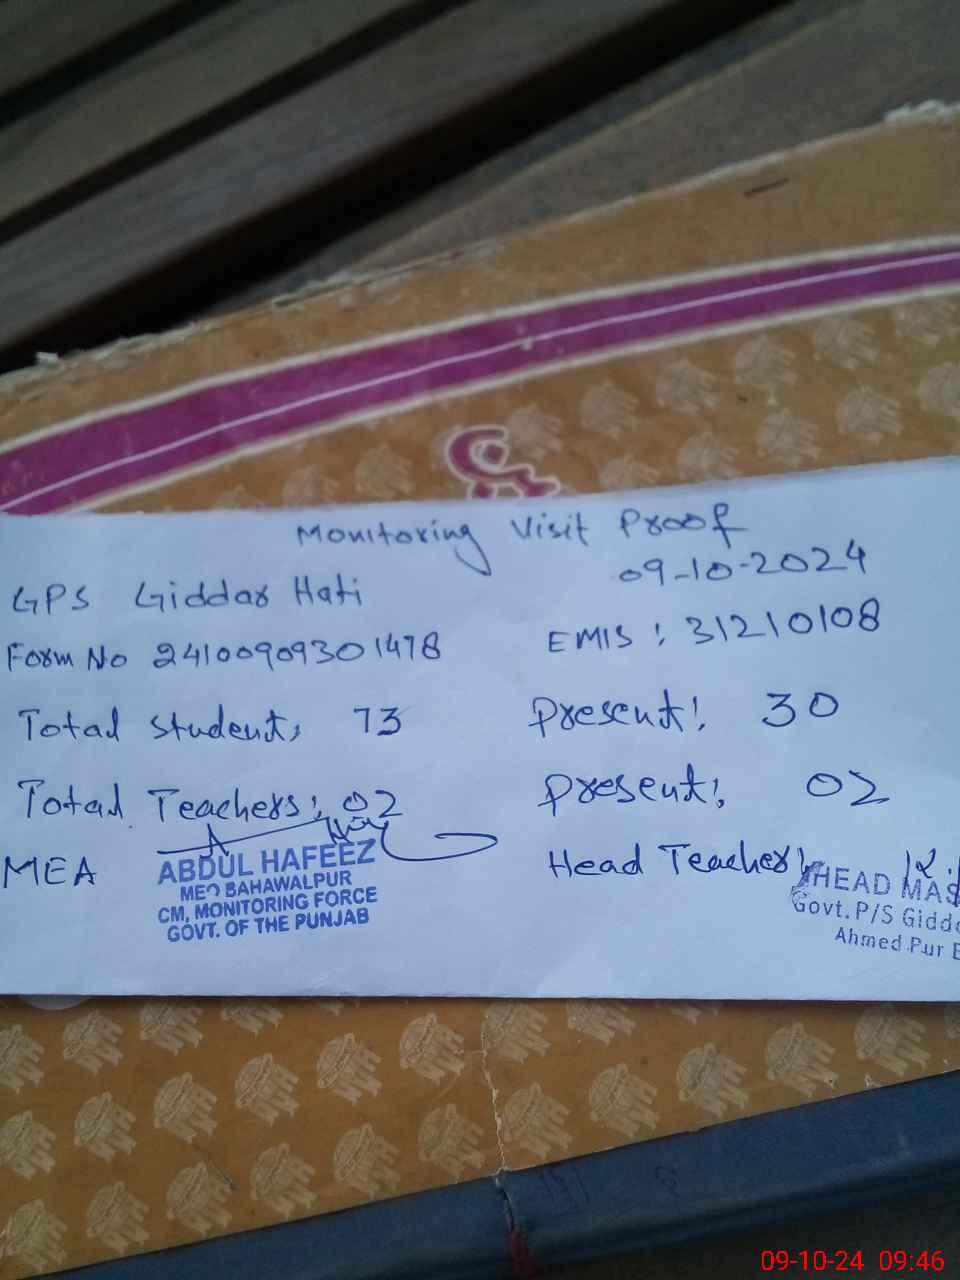 Monitoring Visit Proof
09-10-2024
GPS Giddar Hati
Form No 24100909301478 EMIS: 31210108
Total Students 73 Present: 30
Total Teachers: 02 Present: 02
MEA Head Teacher:
ABDUL HAFEEZ
MEO BAHAWALPUR
CM, MONITORING FORCE
GOVT. OF THE PUNJAB
HEAD MAS
Govt. P/S Gidd
Ahmed Pur E
09-10-24 09:46